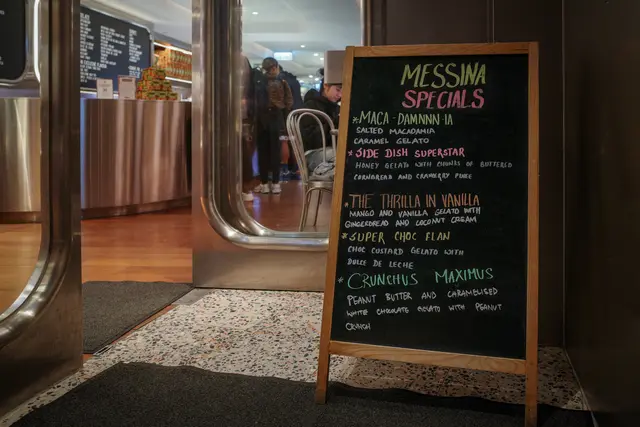 MESSINA
SPECIALS
*MACA-DAMNNN-IA
SALTED MACADAMIA
CARAMEL GELATO
*SIDE DISH SUPERSTAR
HONEY GELATO WITH OF BUTTERED
CORNBREAD AND CRANBERRY PUREE
*THE THRILLA IN VANILLA
MANGO AND VANILLA GELATO WITH
GINGERBREAD AND COCONUT CREAM
*SUPER CHOC FLAN
CHOC CUSTARD GELATO WITH
DULCE DE LECHE
*CRUNCHUS MAXIMUS
PEANUT BUTTER AND CARAMELISED
WHITE CHOCOLATE GELATO WITH PEANUT
CRUNCH